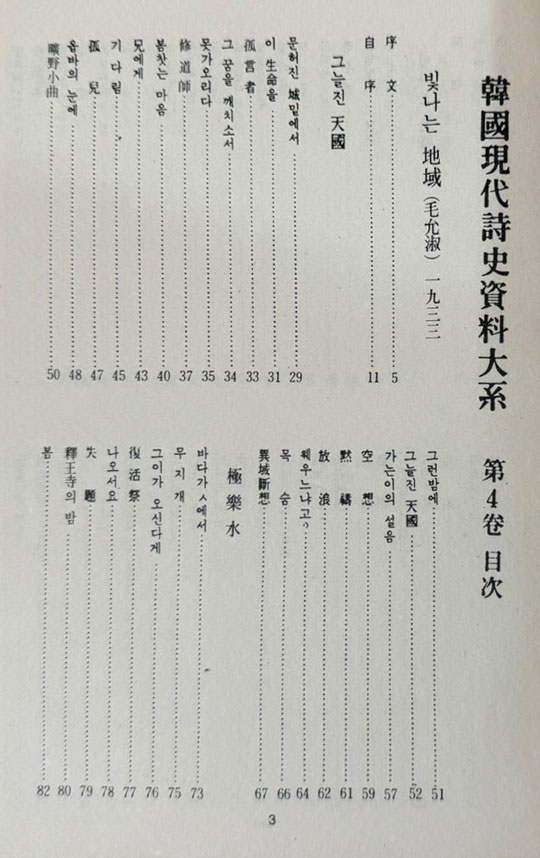 韓國現代詩史資料大系 第4卷 目次
빛나는 地域 (毛允淑) 一九三三
序文 5
自序 11
그늘진 天國
문허진 城밑에서 29
이 生命을 31
孤言者 33
그 꿈을 깨치소서 34
못가오리다 35
修道師 37
봄찻는 마음 40
兄에게 43
기다림 45
孤兒 47
옵바의 눈에 48
曠野小曲 50
그런밤에 51
그늘진 天國 52
가는이의 설음 57
空想 59
默禱 61
放浪 62
웨우느냐고 64
목숨 66
異域斷想 67
極樂水
바다가ㅅ에서 73
무지개 75
그이가 오신다게 76
復活祭 77
나오서요 78
失題 79
釋王寺의 밤 80
봄 82
3